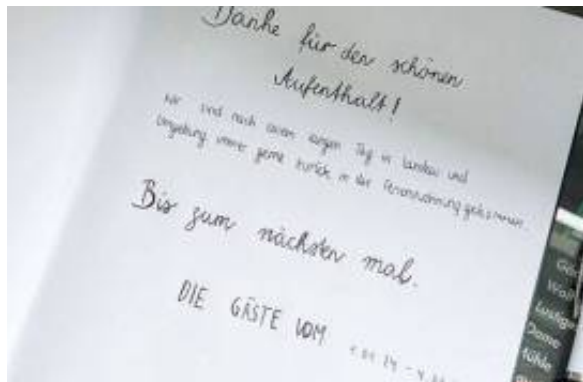 Danke für den schönen
Aufenthalt!
Wir sind nach einem langen Tag in Landau und
Umgebung immer gerne zurück in die Ferienwohnung gekommen.
Bis zum nächsten mal.
DIE GÄSTE VOM
Lustige
Dame
Kühle